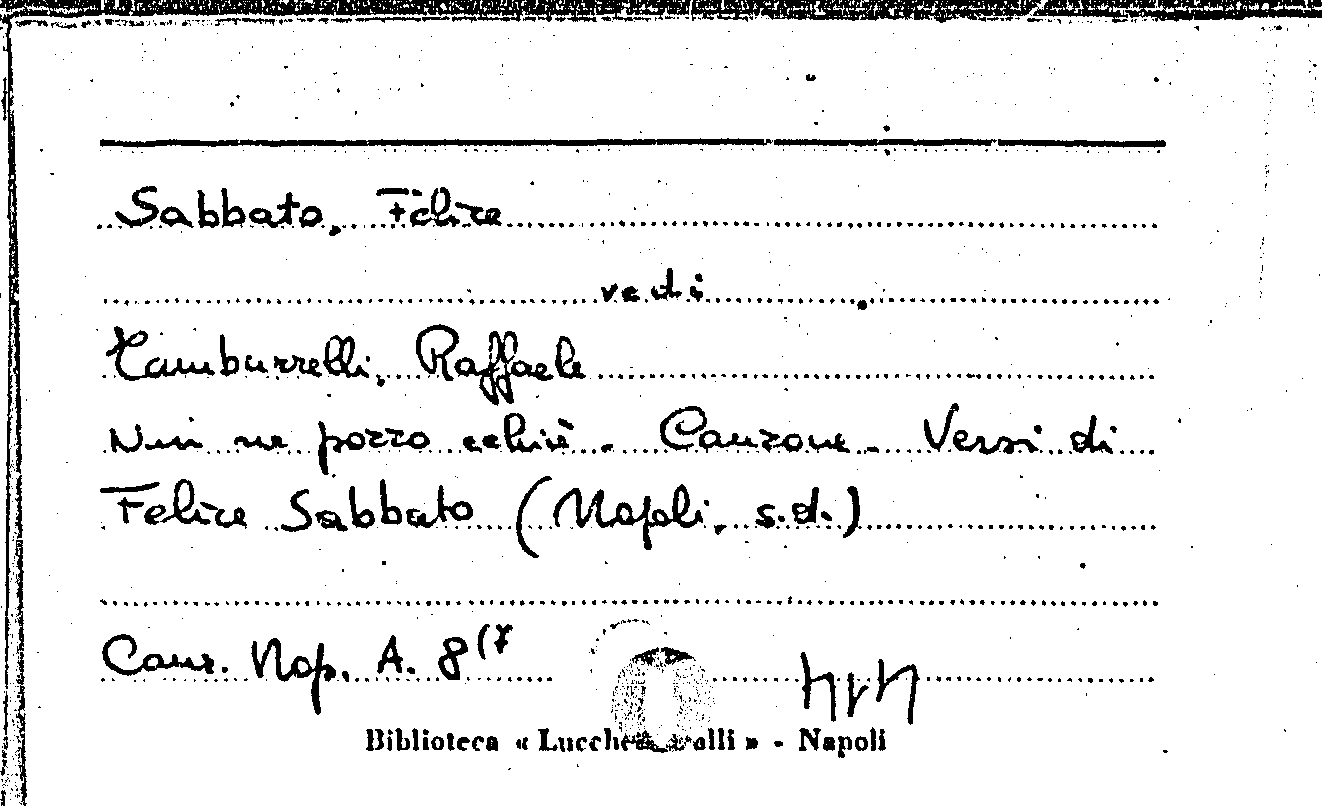 Sabbato, Felice
vedi
Tamburrelli, Raffaele
Nun ne pozzo cchiù. Canzone. Versi di
Felice Sabbato (Napoli, s.d.)
Canz. Nap. A. 8 (7
Biblioteca « Lucchesi Palli » - Napoli